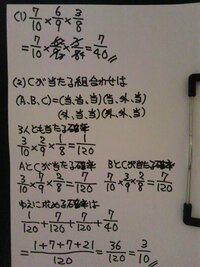 (1) 7/10 × 6/9 × 3/8
= 7/10 × × = 7/40
(2) Cが当たる組合わせは
(A、B、C)=(当、当、当)(当、外、当)
(外、当、当)(外、外、当)
3人とも当たる確率
3/10 × 2/9 × 1/8 = 1/120
AとCが当たる確率 BとCが当たる確率
3/10 × 7/9 × 2/8 = 7/120 7/10 × 3/9 × 2/8 = 7/120
ゆえに求める確率は
1/120 + 7/120 + 7/120 + 7/40
= 1+7+7+21/120 = 36/120 = 3/10